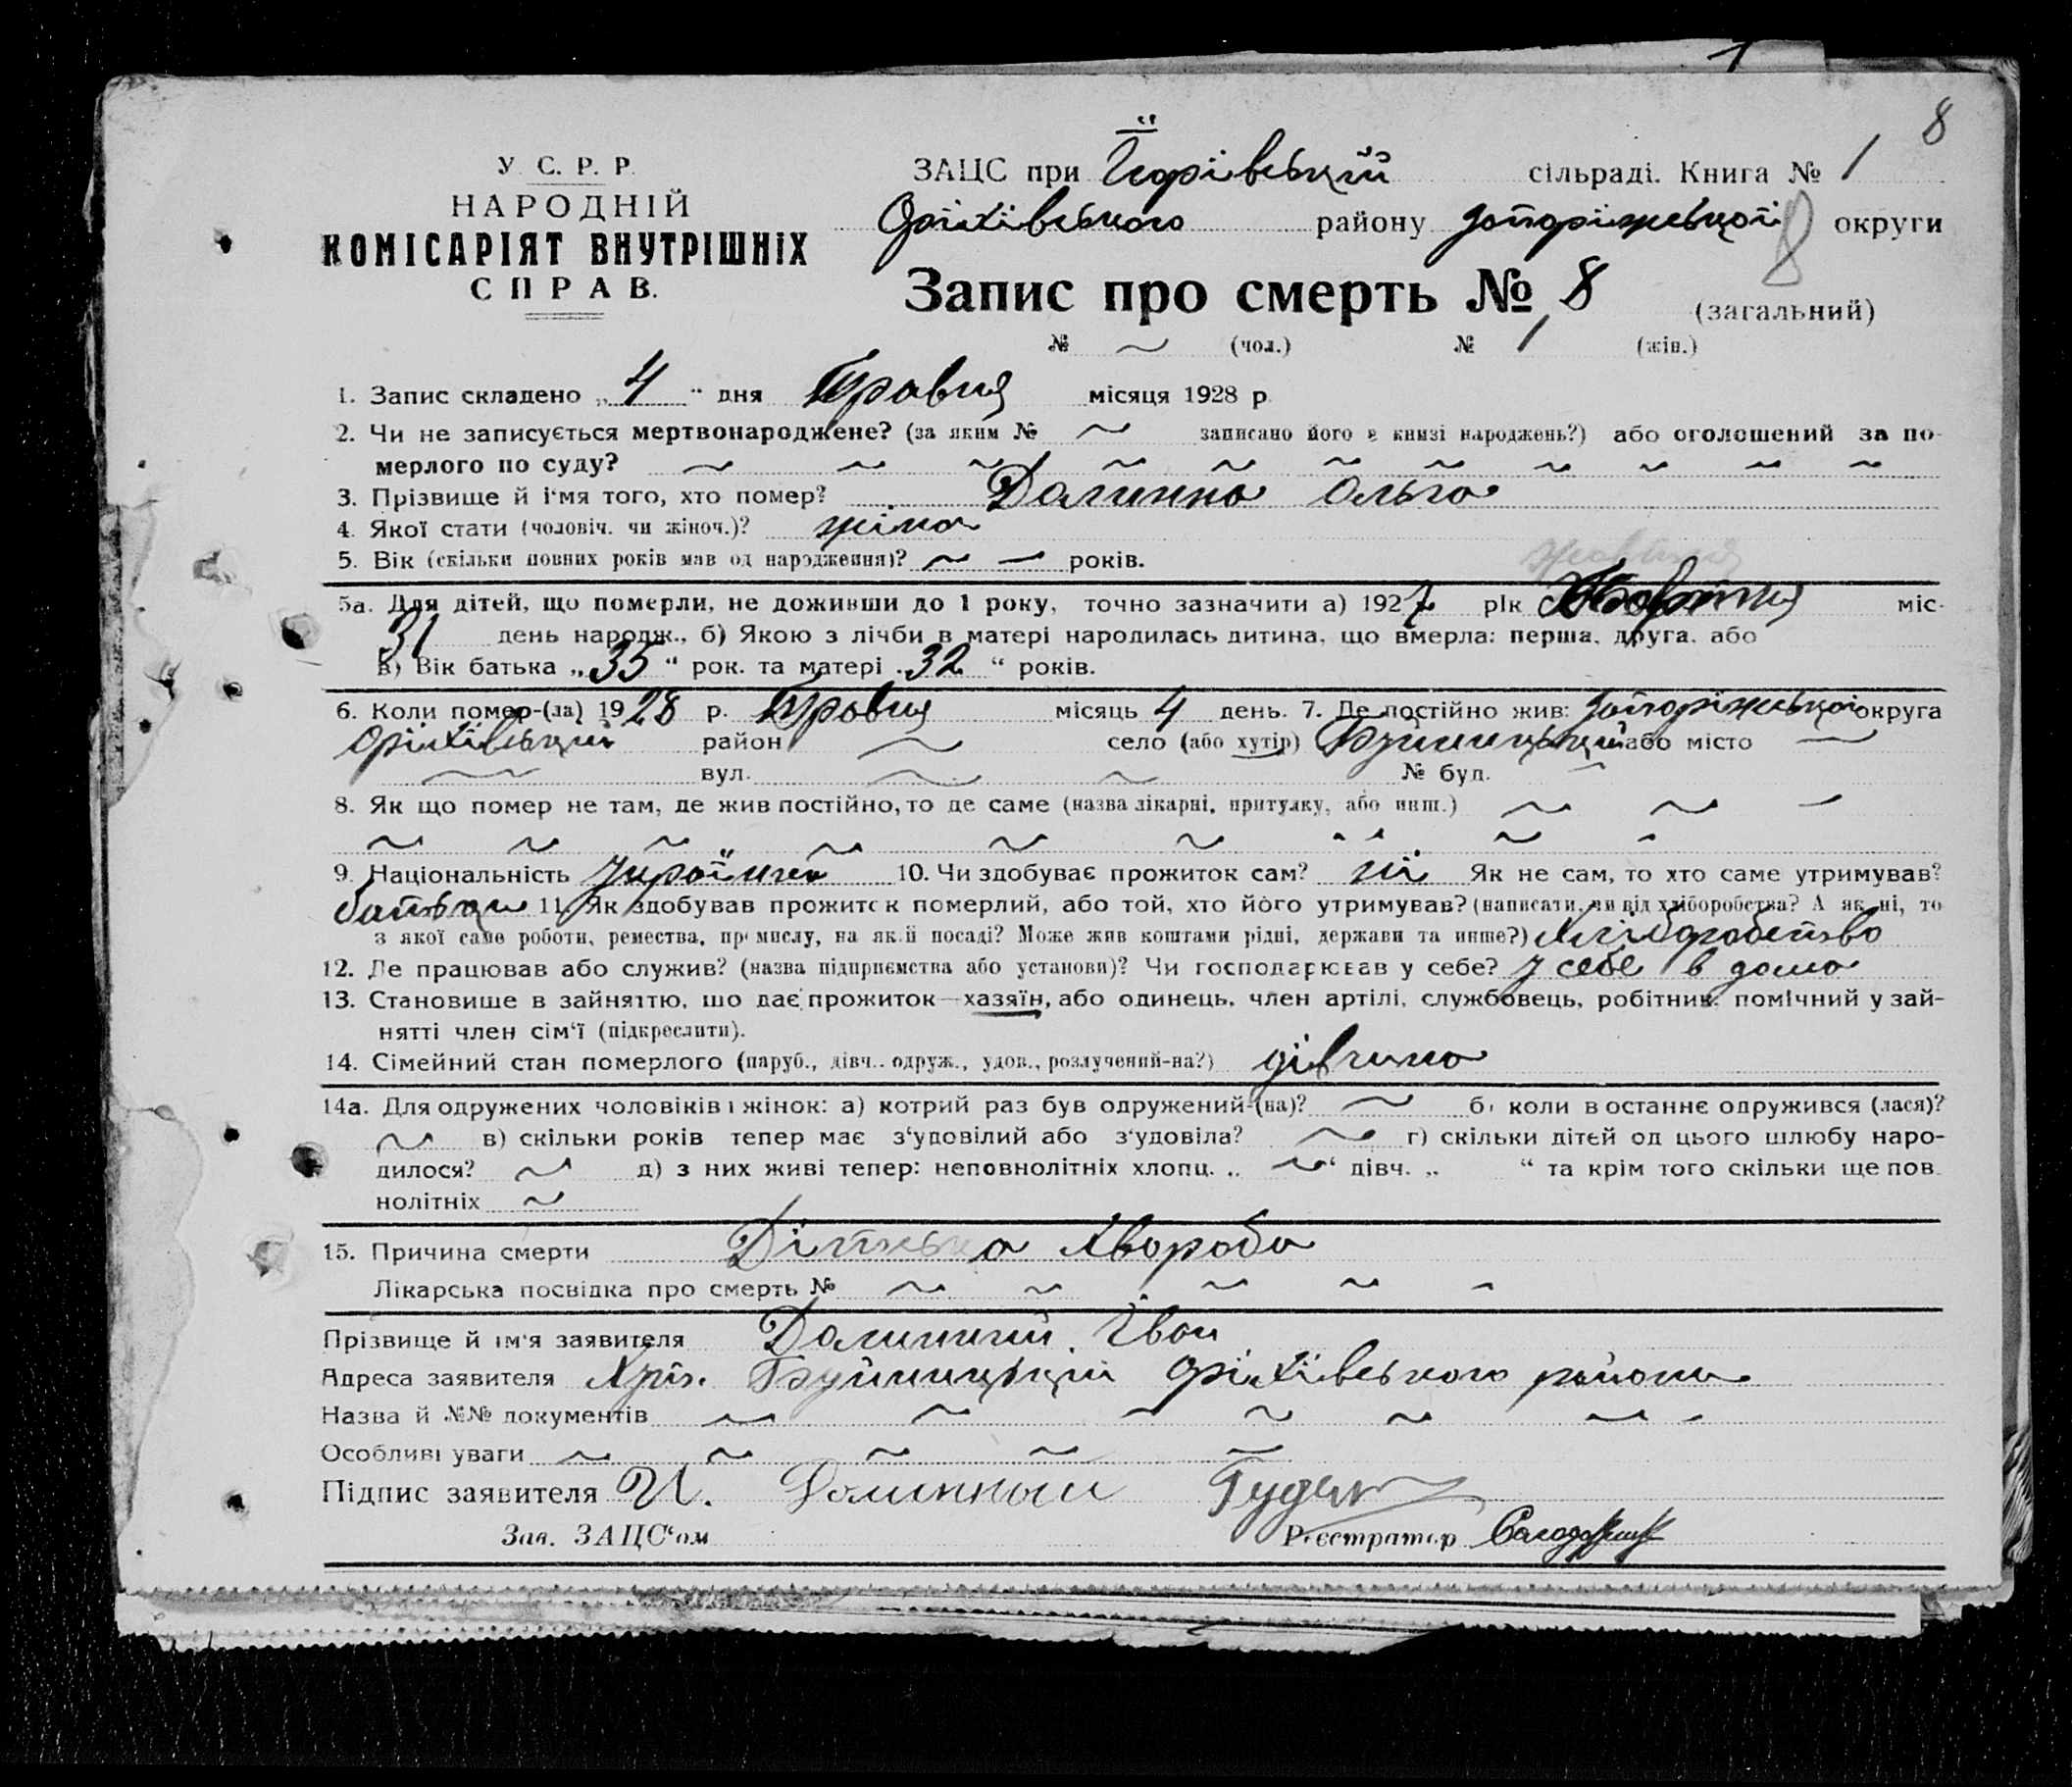 8
У. С. Р. Р.
НАРОДНІЙ
КОМІСАРІЯТ ВНУТРІШНІХ
СПРАВ.
ЗАЦС при сільраді. Книга № 1
Оріхівського району Запоріжської округи
8
Запис про смерть № 8 (загальний)
№ ~ (чол.) № 1 (жін.)
1. Запис складено „ 4 “ дня Травня місяця 1928 р.
2. Чи не записується мертвонароджене? (за яким № ~ записано його в книзі народжень?) або оголошений за по-
мерлого по суду? ~ ~ ~ ~ ~ ~ ~ ~ ~ ~ ~
3. Прізвище й і'мя того, хто помер? Долинна Ольга
4. Якої стати (чоловіч. чи жіноч.)? жіноч
5. Вік (скільки повних років мав од народження)? ~ — років.
Жовтня
5а. Для дітей, що померли, не доживши до 1 року, точно зазначити а) 1927 рік Жовтня міс-
31 день народж., б) Якою з лічби в матері народилась дитина, що вмерла: перша, друга, або
в) Вік батька „ 35 “ рок. та матері „ 32 “ років.
6. Коли помер-(ла) 1928 р. Травня місяць 4 день. 7. Де постійно жив: Запоріжської округа
Оріхівський район ~ село (або хутір) або місто —
~ вул. ~ ~ № буд. ~
8. Як що помер не там, де жив постійно, то де саме (назва лікарні, притулку, або инш.) ~ ~ —
~ ~ ~ ~ ~ ~ ~ ~ ~ ~
9. Національність Україн 10. Чи здобуває прожиток сам? ні Як не сам, то хто саме утримував?
батьки 11. Як здобував прожиток померлий, або той, хто його утримував? (написати, чи від хліборобства? А як ні, то
з якої саме роботи, ремества, промислу, на якій посаді? Може жив коштами рідні, держави та инше?) Хліборобство
12. Де працював або служив? (назва підприємства або установи)? Чи господарював у себе? у себе в дома
13. Становище в зайняттю, що дає прожиток—хазяїн, або одинець, член артілі, службовець, робітник, помічний у зай-
нятті член сім'ї (підкреслити).
14. Сімейний стан померлого (паруб., дівч., одруж., удов., розлучений-на?) дівчина
14а. Для одружених чоловіків і жінок: а) котрий раз був одружений-(на)? ~ б) коли в останнє одружився (лася)?
~ в) скільки років тепер має з'удовілий або з'удовіла? ~ г) скільки дітей од цього шлюбу наро-
дилося? ~ д) з них живі тепер: неповнолітніх хлопц. „ ~ “ дівч. „ “ та крім того скільки ще пов-
нолітніх ~
15. Причина смерти Дітська Хвороба
Лікарська посвідка про смерть № ~ ~ ~ ~ ~
Прізвище й ім'я заявителя Долинний Іван
Адреса заявителя Хут. Оріхівського району
Назва й №№ документів ~ ~ ~ ~ ~ ~ ~
Особливі уваги ~ ~ ~ ~ ~
Підпис заявителя И. Долинный
Зав. ЗАЦС'ом Реєстратор